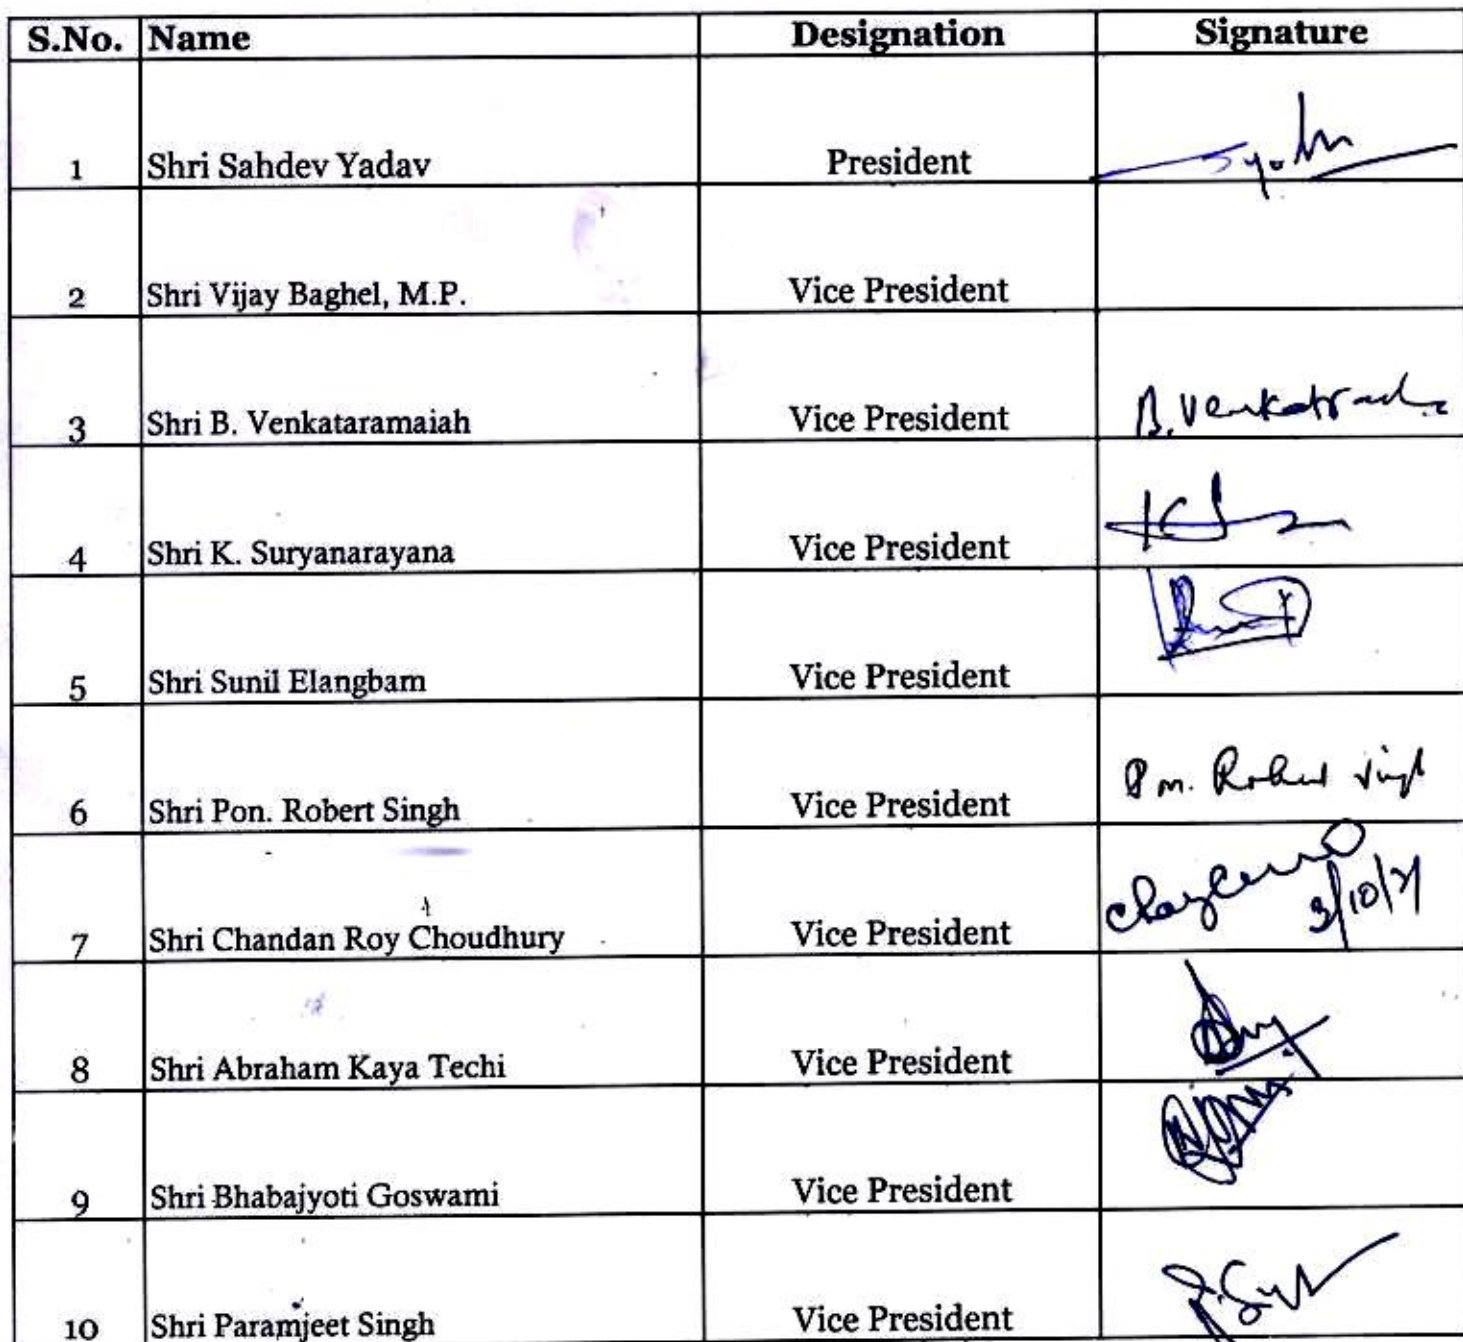 S.No. Name Designation Signature
1 Shri Sahdev Yadav President
2 Shri Vijay Baghel, M.P. Vice President
3 Shri B. Venkataramaiah Vice President B. Venkat
4 Shri K. Suryanarayana Vice President
5 Shri Sunil Elangbam Vice President
6 Shri Pon. Robert Singh Vice President Pon. Robert Singh
7 Shri Chandan Roy Choudhury Vice President 3/10/21
8 Shri Abraham Kaya Techi Vice President
9 Shri Bhabajyoti Goswami Vice President
10 Shri Paramjeet Singh Vice President